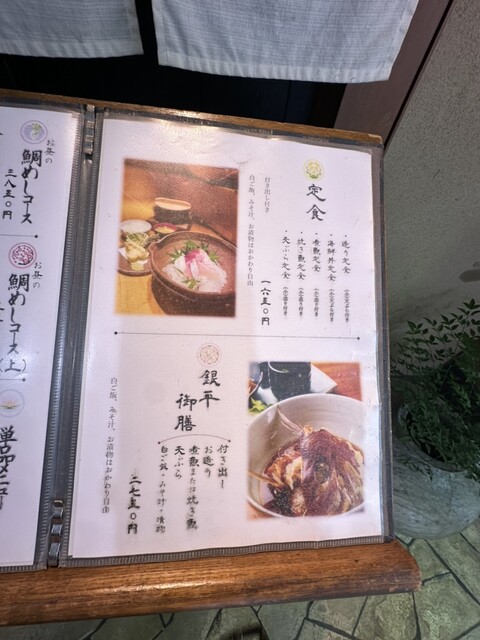 定食
・造り定食 (小天ぷら付き)
・海鮮丼定食 (小天ぷら付き)
・煮魚定食 (小造り付き)
・焼き魚定食 (小造り付き)
・天ぷら定食 (小造り付き)
付き出し付き
白ご飯、みそ汁、お漬物はおかわり自由
一六五〇円
銀平
御膳
付き出し
お造り
煮魚または焼き魚
天ぷら
白ご飯・みそ汁・漬物
二七五〇円
白ご飯、みそ汁、お漬物はおかわり自由
お昼の
鯛めしコース
三八五〇円
お昼の
鯛めしコース(上)
単品